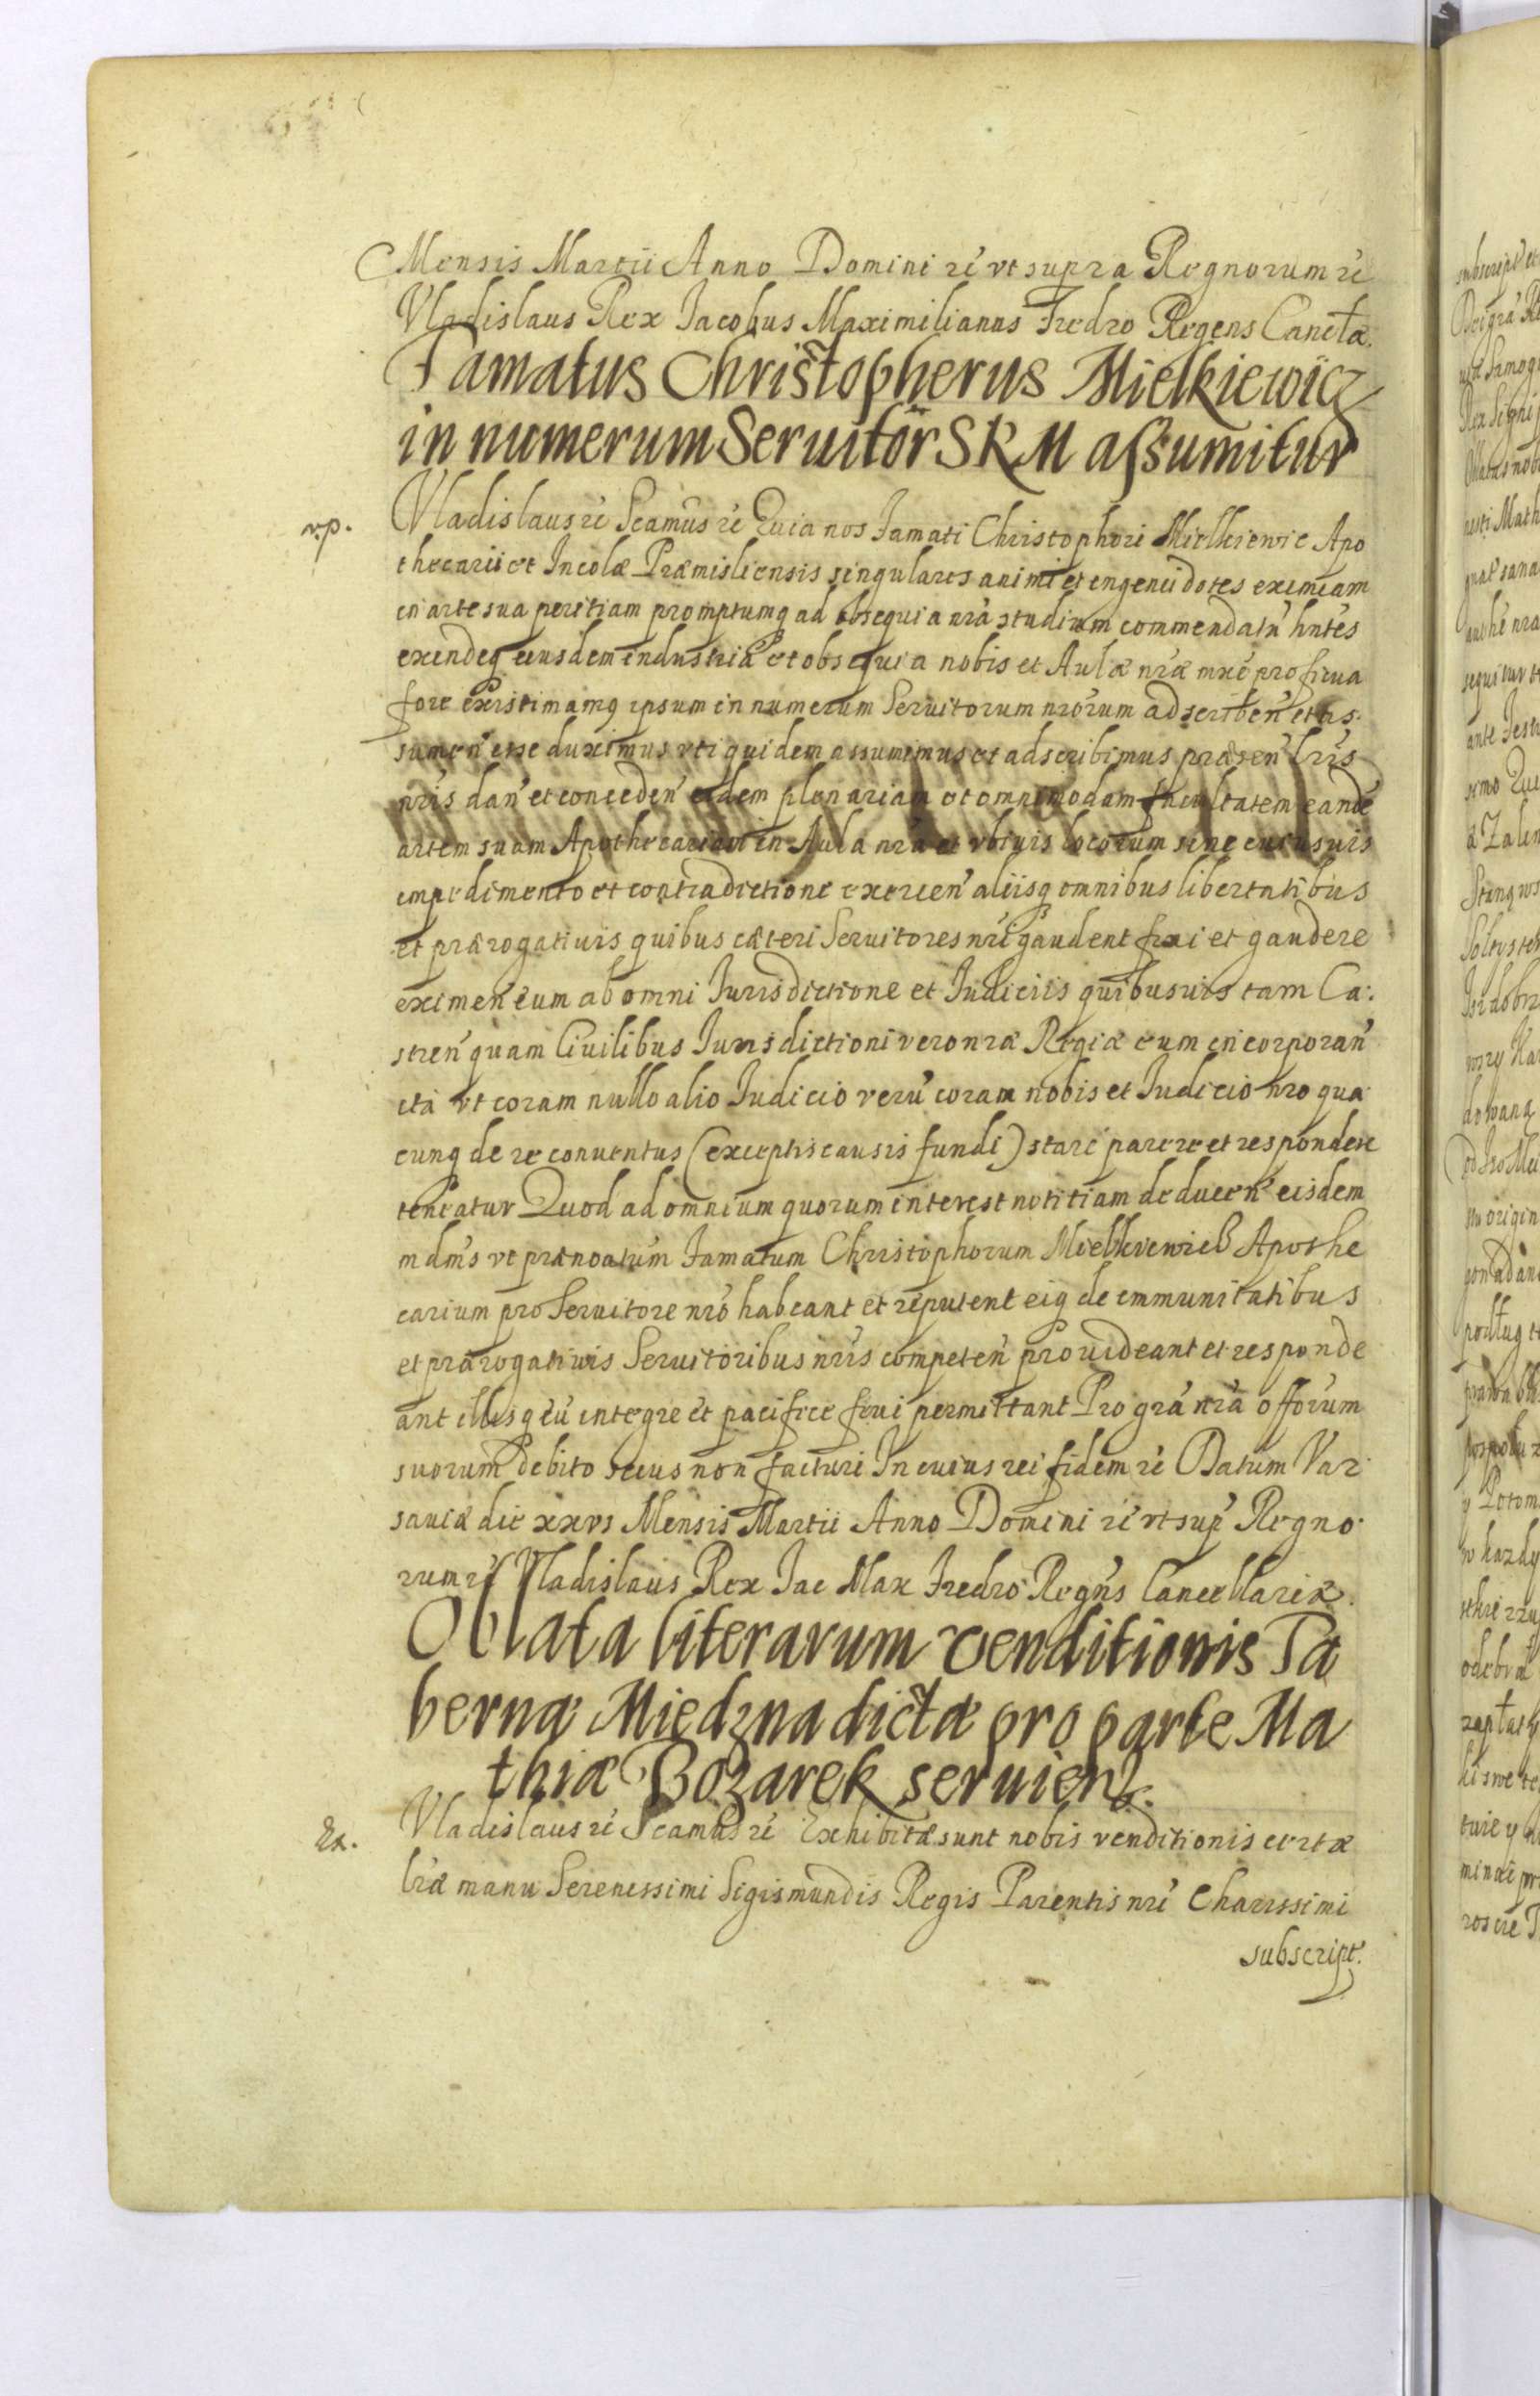 Mensis Martii Anno Domini rẽ vt supra Regnorum rẽ
Vladislaus Rex Jacobus Maximilianus Fredro Regens Canctæ.
Famatus Christopherus Mielkiewicz
in numerum Seruitor̃ SRM assumitur
v.p.
Vladislaus rẽ Scamus rẽ Quia nos Famati Christophori Mielkiewic Apo
thecarii et Incolæ Præmisliensis singulares animi et ingenii dotes eximiam
in arte sua peritiam promptumq ad obsequia nrã studium commendatũ hntẽs
exindeq eiusdem industriã et obsequia nobis et Aulæ nræ mxẽ profirua
fore existimamq ipsum in numerum Seruitorum nrõrum adscriben̄ et as
sumen̄ esse duximus vti quidem assumimus et adscribimus præsen̄ lrĩs
nrĩs dan̄ et conceden̄ eidem plenariam et omnimodam facultatem eandẽ
artem suam Apothecariam in Aula nrã et vbiuis locorum sine cuiusuis
impedimento et contradictione exercen̄ aliisq omnibus libertatibus
et prærogatiuis quibus cæteri Seruitores nrĩ gaudent frui et gaudere
eximen̄ eum ab omni Iurisdictione et Iudiciis quibusuis tam Ca:
stren̄ quam Ciuilibus Iurisdictioni vero nræ Regiæ eum incorporan̄
ita vt coram nullo alio Iudicio verũ coram nobis et Iudicio nrõ qua
cunq de re conuentus (exceptis causis fundi) stare parere et respondere
teneatur Quod ad omnium quorum interest notitiam deducen̄ eisdem
mdm̃s vt prænoatum Famatum Christophorum Mielkiewicz Apothe
carium pro Seruitore nrõ habeant et reputent eiq de immunitatibus
et prærogatiuis Seruitoribus nrĩs competen̄ prouideant et responde
ant illisq eũ integre et pacifice frui permittant Pro grã nrã offõrum
suorum debito secus non facturi In cuius rei fidem rẽ Datum Var
sauiæ die xxvi Mensis Martii Anno Domini rẽ vt sup̃ Regno
rum rẽ Vladislaus Rex Jac Max Fredro Regñs Cancellariæ.
Oblata literarum venditionis Ta
bernæ Miedzna dictæ pro parte Ma
thiæ Bozarek seruien̄.
Ex.
Vladislaus rẽ Scamus rẽ Exhibitæ sunt nobis venditionis certæ
lrãe manu Serenissimi Sigismundis Regis Parentis nrĩ Charissimi
subscript.